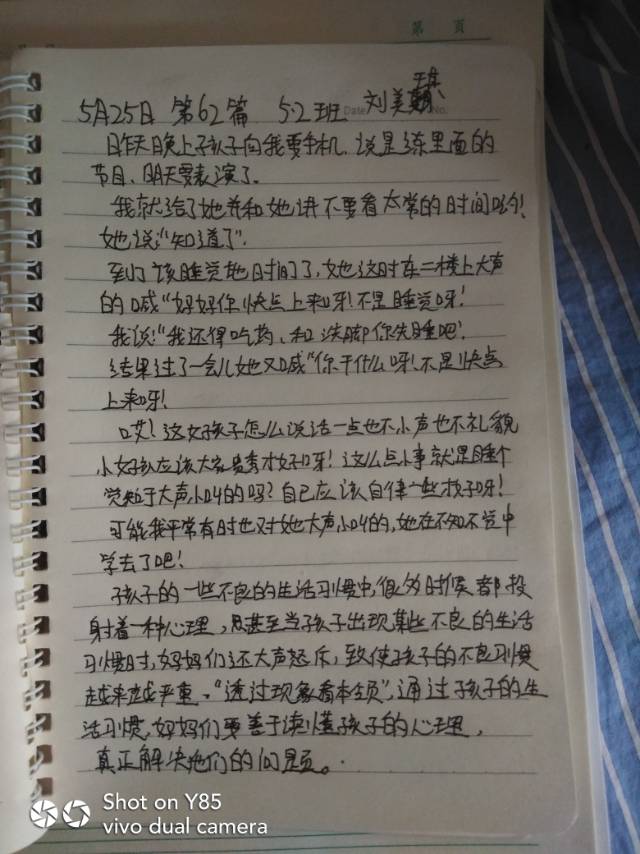 第 頁
5月25日 第62篇 5.2班 Date 刘美 No.
昨天晚上孩子向我要手机,说是练里面的
节目、明天要表演了。
我就给了她并和她讲不要看太常的时间哟!
她说“知道了”.
到了该睡觉地时间了,她这时在二楼上大声
的喊“妈妈你快点上来呀!不是睡觉呀!
我说:“我还得吃药、和洗脚你先睡吧!
结果过了一会儿她又喊“你干什么呀!不是快点
上来呀!
哎!这女孩子怎么说话一点也不小声也不礼貌
小女孩应该大家闺秀才好呀!这么点小事就是睡个
觉短于大声小叫的吗?自己应该自律一些才好呀!
可能我平常有时也对她大声小叫的,她在不知不觉中
学去了吧!
孩子的一些不良的生活习惯中,很多时候都投
射着一种心理,甚至当孩子出现某些不良的生活
习惯时,妈妈们还大声怒斥,致使孩子的不良习惯
越来越严重。“透过现象看本质”,通过孩子的生
活习惯,妈妈们要善于读懂孩子的心理,
真正解决她们的问题。
Shot on Y85
vivo dual camera